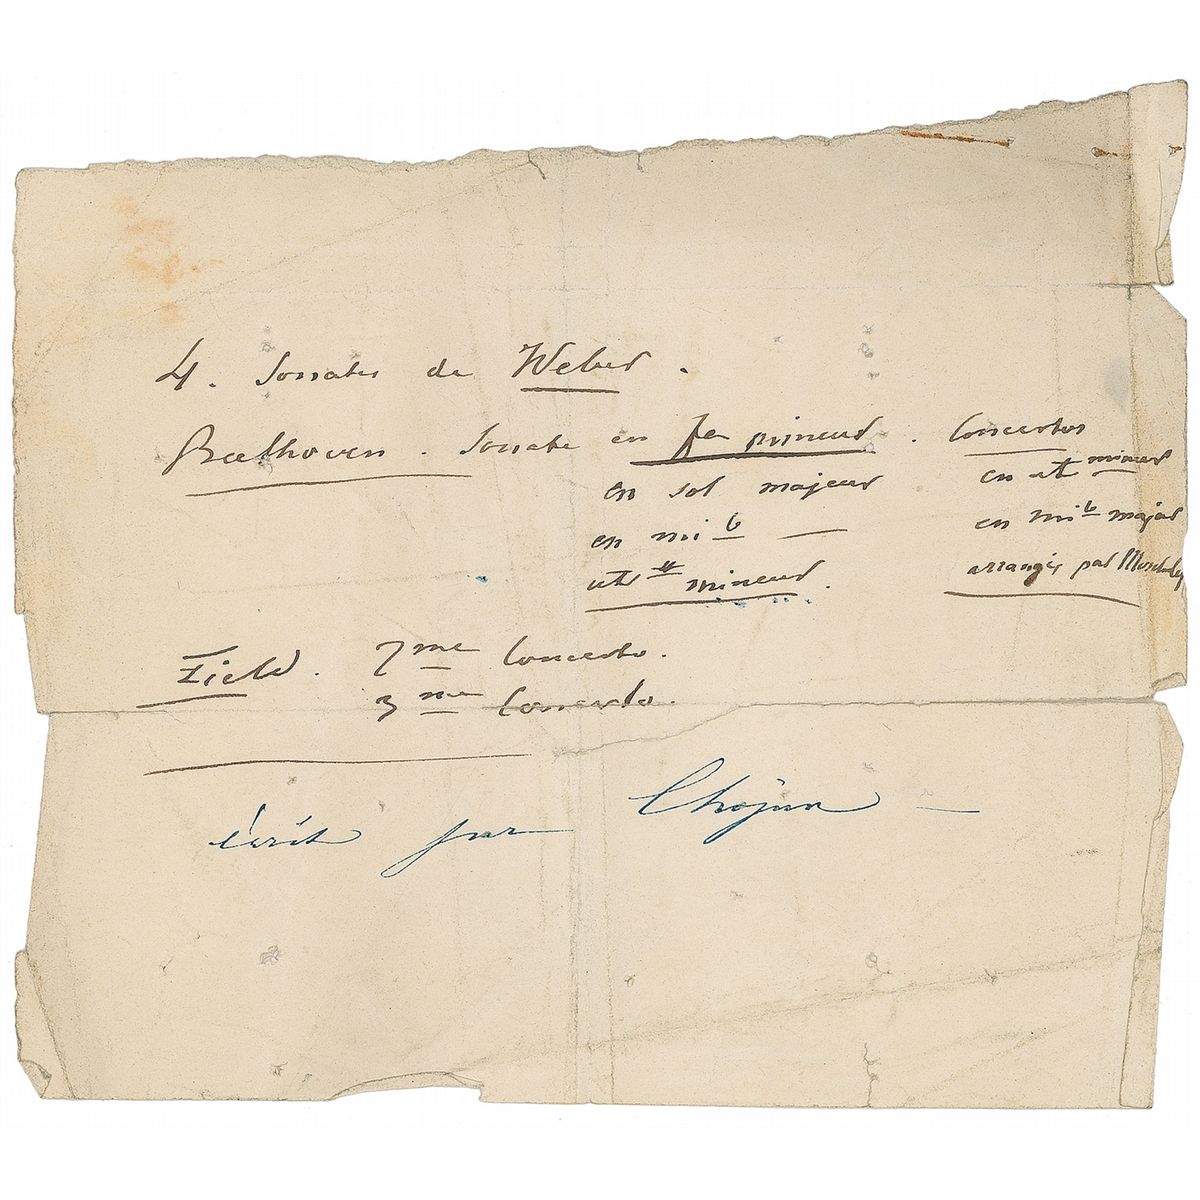 4. Sonates de Weber.
Beethoven. Sonate en fa mineur. Concertos
en sol majeur en ut mineur
en mi b — en mi b majeur
ut # mineur. arrangés par Moscheles
Field. 7me Concerto.
3me Concerto.
écrit par Chopin —